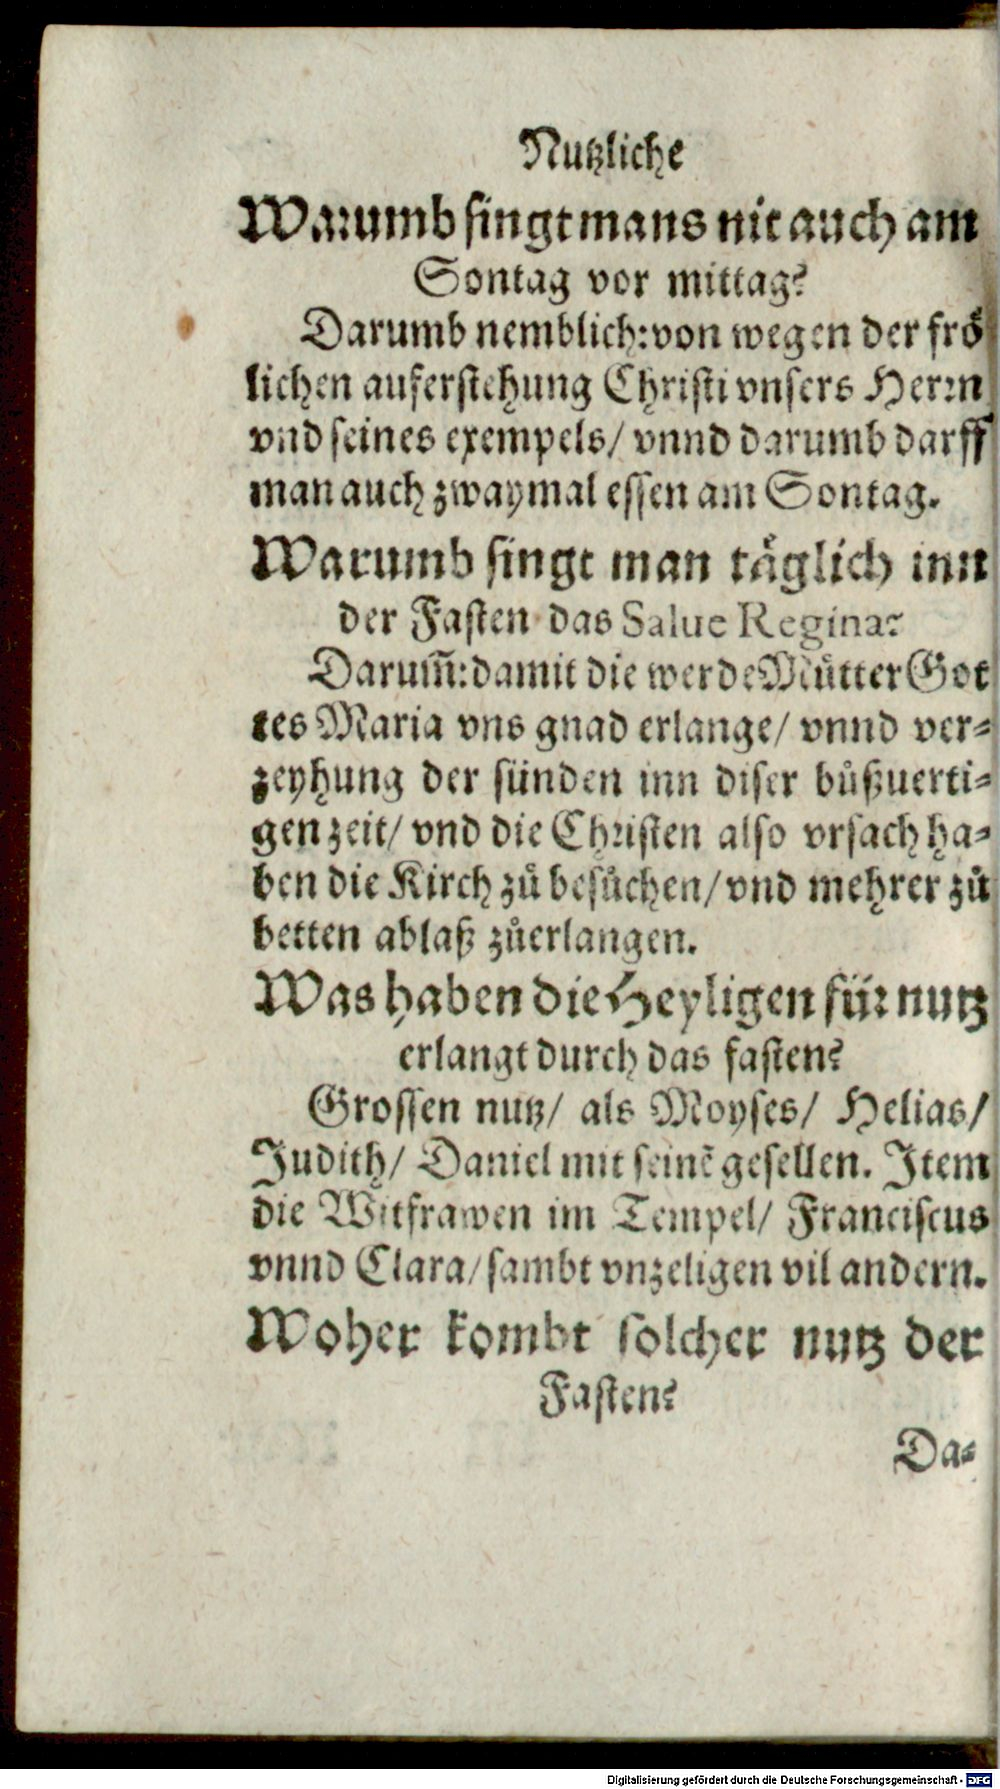 Nutzliche
Warumb singt mans nit auch am
Sontag vor mittag?
Darumb nemblich: von wegen der frö
lichen auferstehung Christi vnsers Herrn
vnd seines exempels/ vnnd darumb darff
man auch zwaymal essen am Sontag.
Warumb singt man täglich inn
der Fasten das Salue Regina?
Darum̃: damit die werde Můtter Got
tes Maria vns gnad erlange/ vnnd ver-
zeyhung der sünden inn diser bůßuerti-
gen zeit/ vnd die Christen also vrsach ha-
ben die Kirch zů besůchen/ vnd mehrer zů
betten ablaß zůerlangen.
Was haben die Heyligen für nutz
erlangt durch das fasten?
Grossen nutz/ als Moyses/ Helias/
Judith/ Daniel mit seinẽ gesellen. Item
die Witfrawen im Tempel/ Franciscus
vnnd Clara/ sambt vnzeligen vil andern.
Woher kombt solcher nutz der
Fasten?
Da-
Digitalisierung gefördert durch die Deutsche Forschungsgemeinschaft - DFG